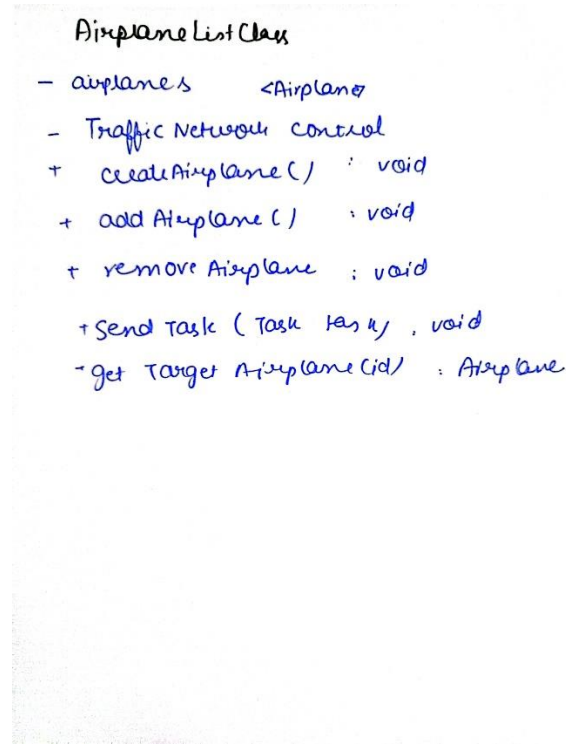 Airplane List Class
- airplanes <Airplane>
- Traffic Network control
+ createAirplane() : void
+ add Airplane() : void
+ remove Airplane : void
+ Send Task (Task task) , void
- get Target Airplane (id) : Airplane